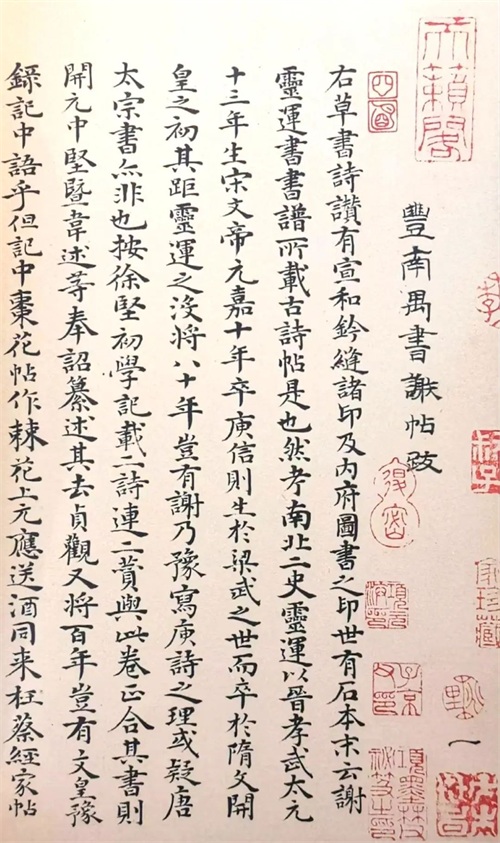 天籟閣
豐南禺書謝帖跋
一
右草書詩讚有宣和鈐縫諸印及內府圖書之印世有石本末云謝
靈運書書譜所載古詩帖是也然考南北二史靈運以晉孝武太元
十三年生宋文帝元嘉十年卒庾信則生於梁武之世而卒於隋文開
皇之初其距靈運之沒將八十年豈有謝乃豫寫庾詩之理或疑唐
太宗書亦非也按徐堅初學記載二詩連二贊與此卷正合其書則
開元中堅暨韋述等奉詔纂述其去貞觀又將百年豈有文皇豫
錄記中語乎但記中棗花帖作棘花上元應送酒同来枉蔡經家帖
家珍藏
子京父印